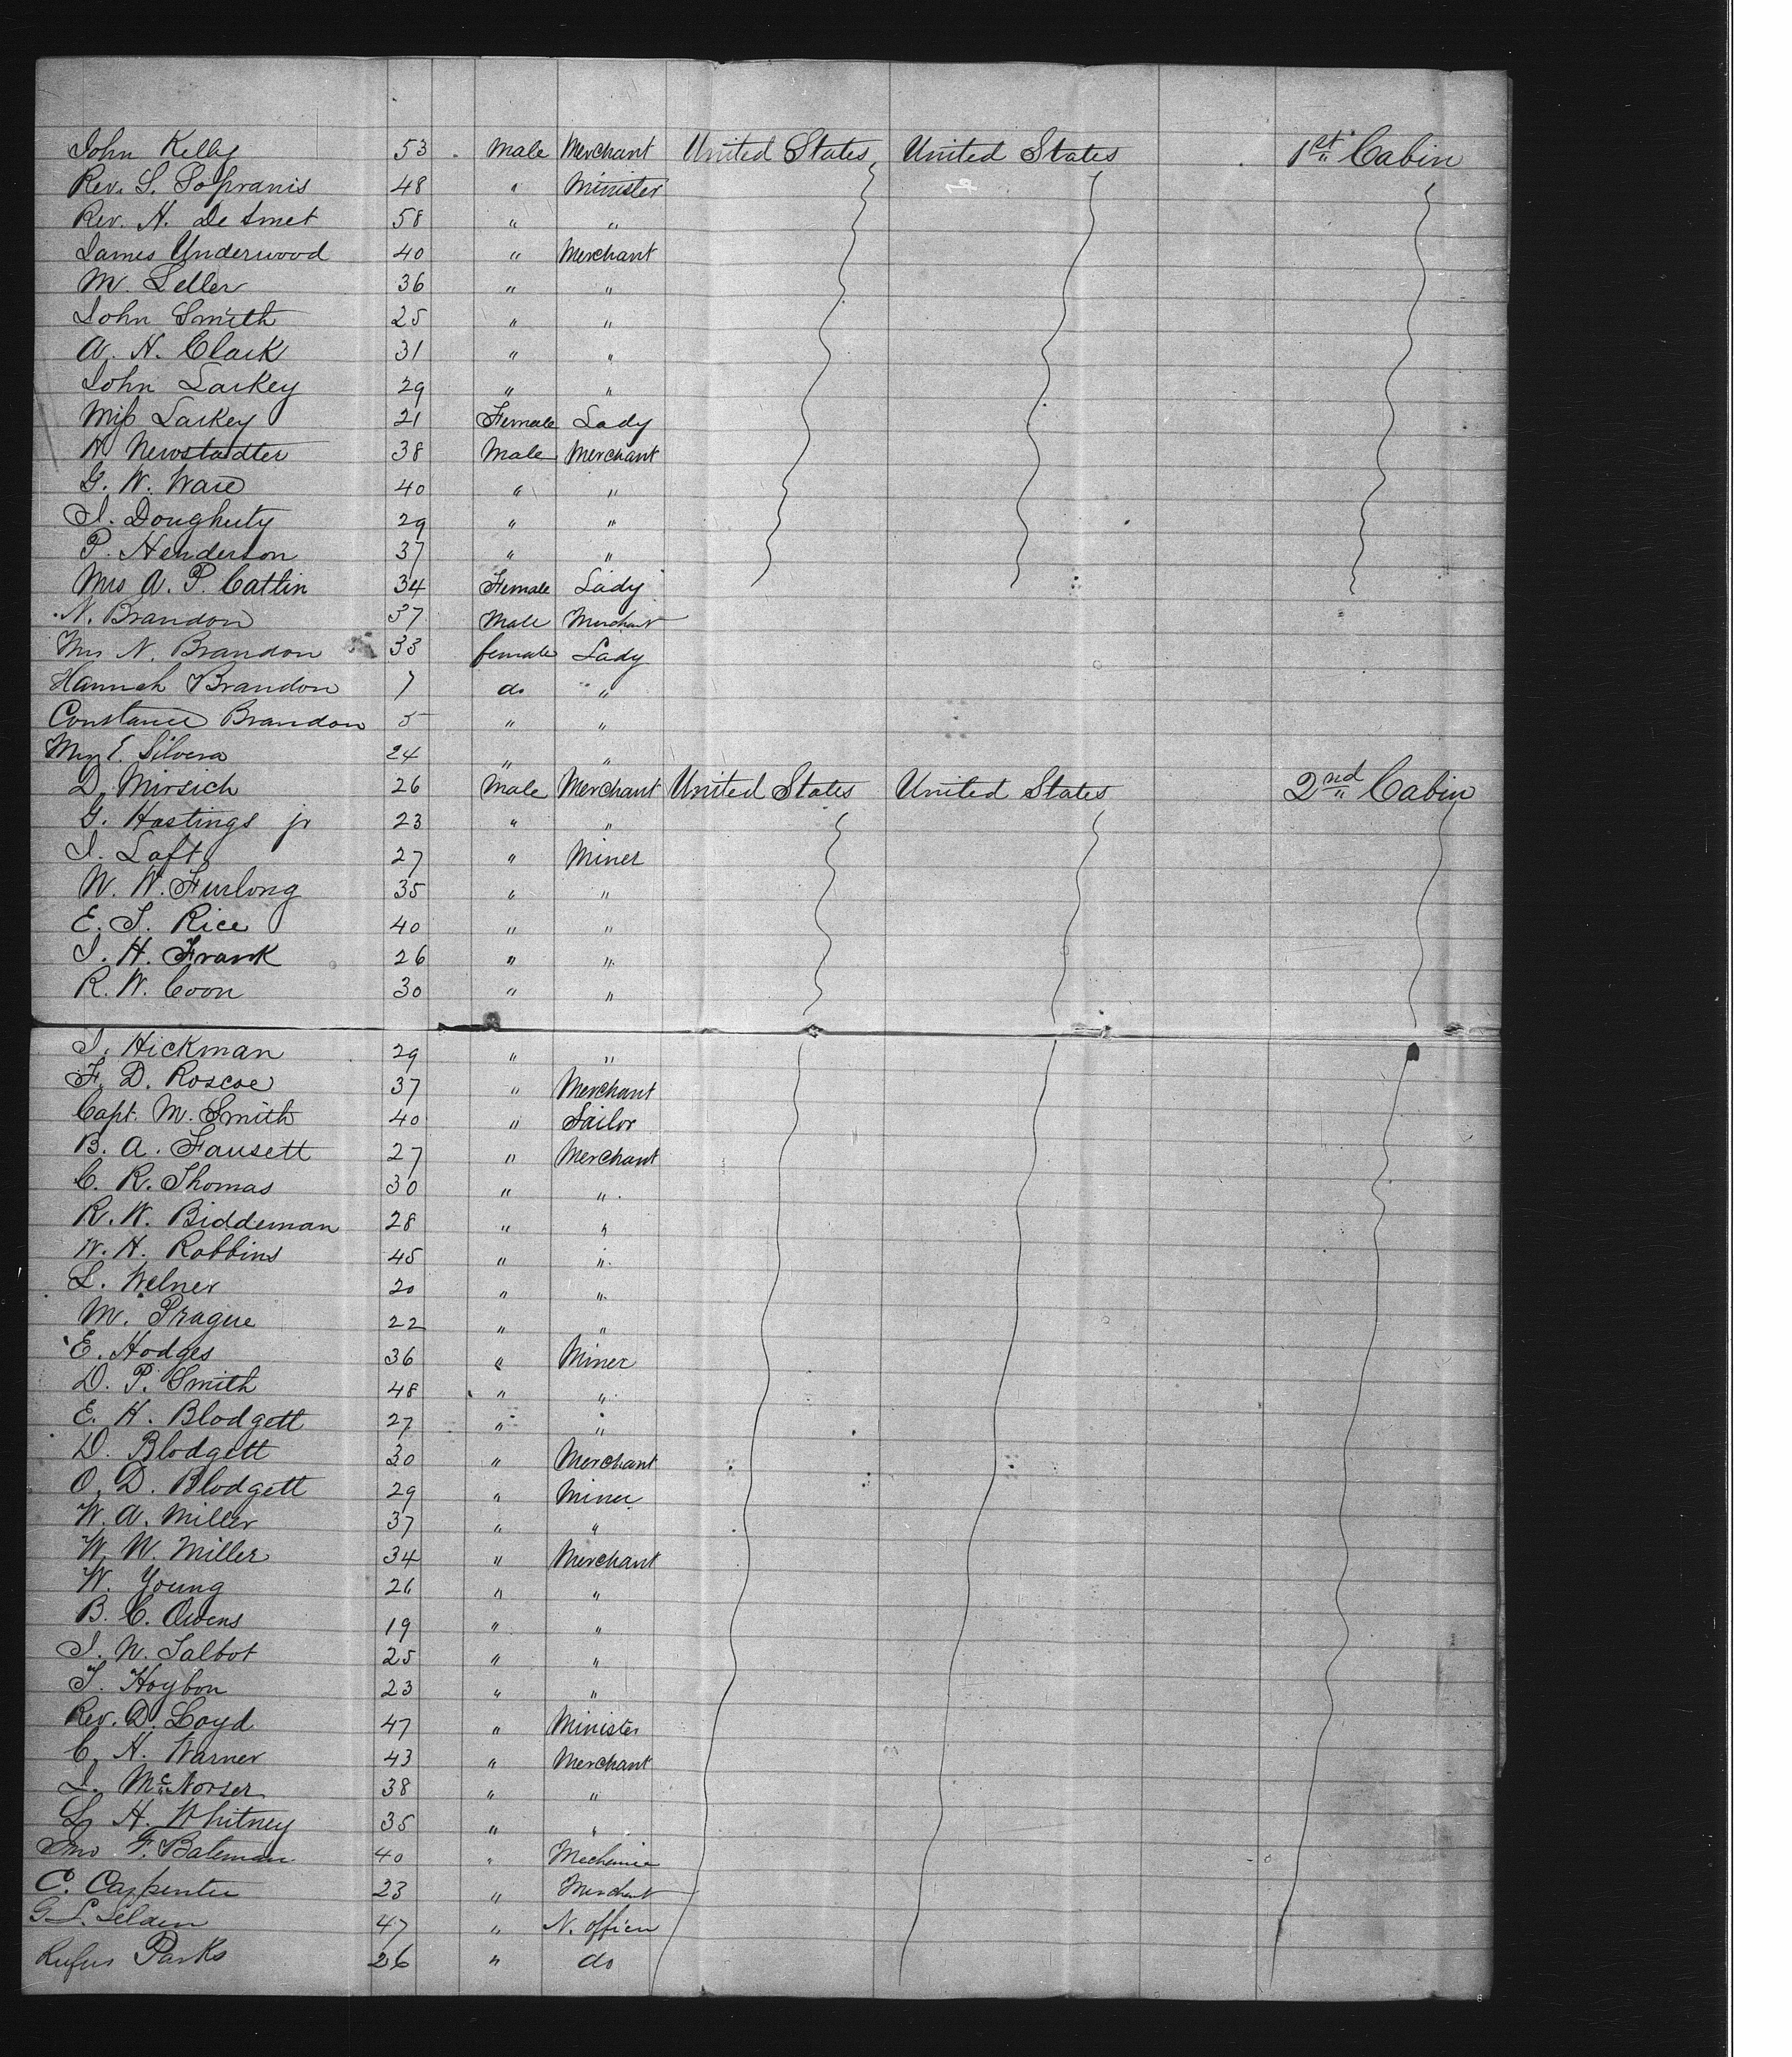 John Kelly 53 Male Merchant United States United States 1st Cabin
Rev. S. Sopranis 48 " Minister
Rev. H. De Smet 58 " "
James Underwood 40 " Merchant
M. Seller 36 " "
John Smith 25 " "
A. H. Clark 31 " "
John Larkey 29 " "
Miss Larkey 21 Female Lady
H Newstadter 38 Male Merchant
G. W. Ware 40 " "
J. Dougherty 29 " "
P. Henderson 37 " "
Mrs A. P. Catlin 34 Female Lady
N. Brandon 37 Male Merchant
Mrs N. Brandon 33 female Lady
Hannah Brandon 7 do "
Constance Brandon 5 " "
E. Silvera 24 " "
D. Mirsich 26 Male Merchant United States United States 2nd Cabin
G. Hastings jr 23 " "
J. Laft 27 " Miner
W. W. Furlong 35 " "
E. S. Rice 40 " "
J. H. Frank 26 " "
R. W. Coon 30 " "
J. Hickman 29 " "
F. D. Roscoe 37 " Merchant
Capt. M. Smith 40 " Sailor
B. A. Fausett 27 " Merchant
C. R. Thomas 30 " "
R. W. Biddeman 28 " "
W. H. Robbins 45 " "
L. Welner 20 " "
M. Prague 22 " "
E. Hodges 36 " Miner
D. P. Smith 48 " "
E. H. Blodgett 27 " "
D. Blodgett 30 " Merchant
O. D. Blodgett 29 " Miner
W. A. Miller 37 " "
W. W. Miller 34 " Merchant
W. Young 26 " "
B. C. Owens 19 " "
J. W. Talbot 25 " "
T. Hoybon 23 " "
Rev. D. Loyd 47 " Minister
C. H. Warner 43 " Merchant
J. McNorser 38 " "
H. Whitney 35 " "
Jno F. Bateman 40 " Mechanic
C. Carpenter 23 " Merchant
G L. Selden 47 " N. officer
Rufus Parks 26 " do